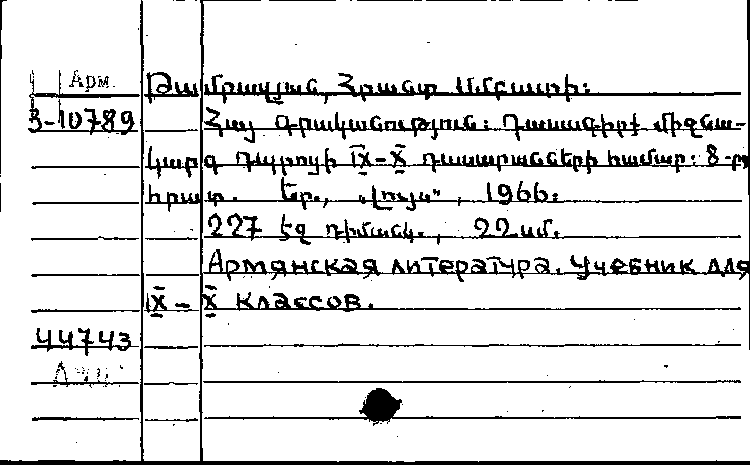 Арм.
Թամրազյան, Հրանտ Սմբատի:
3-10789
Հայ գրականություն: Դասագիրք միջնա-
կարգ դպրոցի IX-X դասարանների համար: 8-րդ
հրատ. Եր., „Լույս", 1966:
227 էջ դիմանկ., 22 սմ.
Армянская литература. Учебник для
IX-X классов.
44743